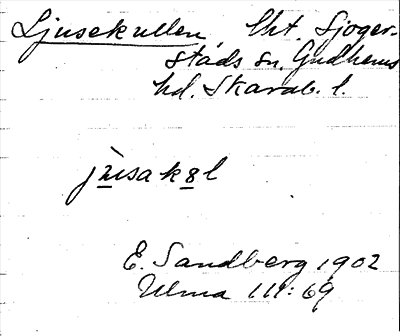 Ljusekullen lht. Sjoger-
stads sn. Gudhems
hd. Skarab. l.
jùsak8l
E. Sandberg 1902
Ulma 111:69